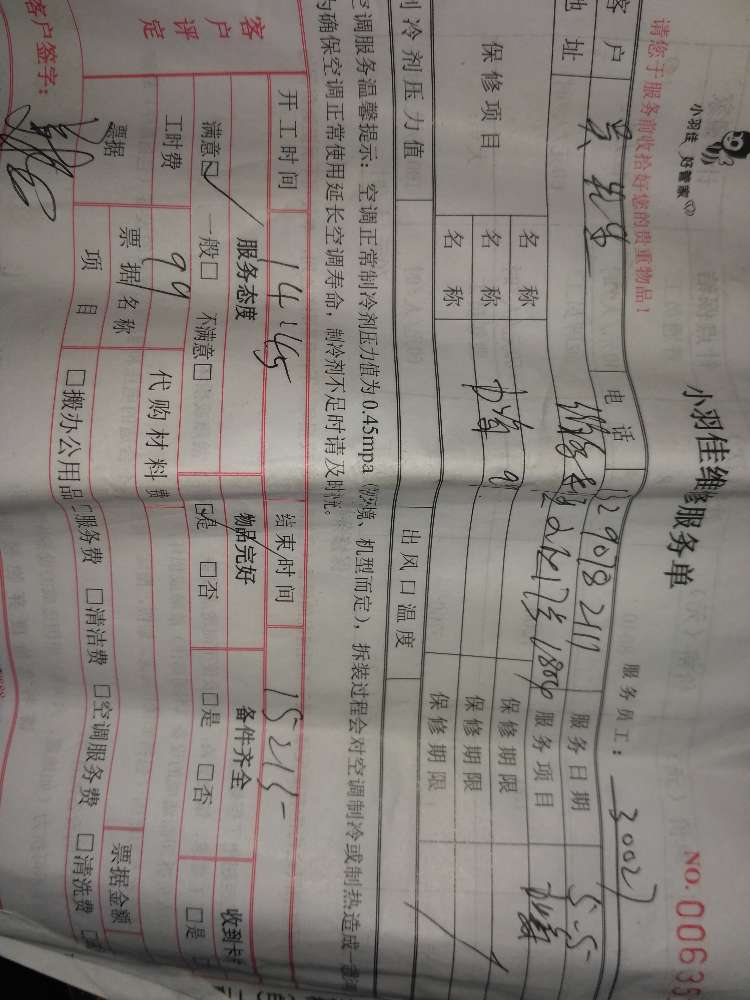 小羽佳 好管家
小羽佳维修服务单
NO.00635
请您于服务前收拾好您的贵重物品！
服务员工：30027
客户 电话 服务日期 5-5
地址 1804 服务项目
保修项目 名称 保修期限
名称 保修期限
名称 保修期限
制冷剂压力值 出风口温度
空调服务温馨提示：空调正常制冷剂压力值为0.45mpa（环境、机型而定），拆装过程会对空调制冷或制热造成
为确保空调正常使用延长空调寿命，制冷剂不足时请及时
开工时间 14:45 结束时间 15:15
客户评定 服务态度 物品完好 备件齐全 收到卡
满意☑ 一般□ 不满意□ ☑是 □否 □是 □否 □是
工时费 99 代购材料费
票据 票据名称 票据金额
项目 □搬办公用品 □服务费 □清洁费 □空调服务费 □清洗费
客户签字：